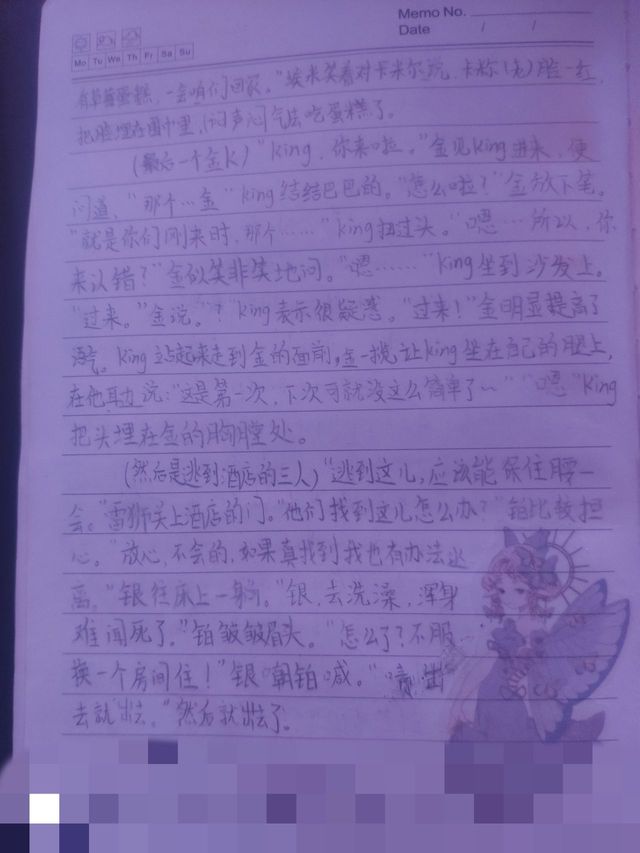 Memo No.
Date / /
Mo Tu We Th Fr Sa Su
有草莓蛋糕，一会咱们回家。"埃米笑着对卡米尔说，卡米尔(尤)脸一红，
把脸埋在围巾里，闷声闷气去吃蛋糕了。
(最后一个金K)"king，你来啦。"金见king进来，便
问道，"那个…金"king结结巴巴的。"怎么啦？"金放下笔。
"就是你们刚来时，那个……"king扭过头。"嗯…所以，你
来认错？"金似笑非笑地问。"嗯……"king坐到沙发上。
"过来。"金说。？king表示很疑惑。"过来！"金明显提高了
语气。king站起来走到金的面前，金一揽让king坐在自己的腿上，
在他耳边说："这是第一次，下次可就没这么简单了~""嗯"King
把头埋在金的胸膛处。
(然后是逃到酒店的三人)"逃到这儿，应该能保住腰一
会。"雷狮关上酒店的门。"他们找到这儿怎么办？"铂比较担
心。"放心，不会的，如果真找到我也有办法逃
离。"银往床上一躺。"银，去洗澡，浑身
难闻死了。"铂皱皱眉头。"怎么了？不服
换一个房间住！"银朝铂喊。"出
去就出去。"然后就出去了。